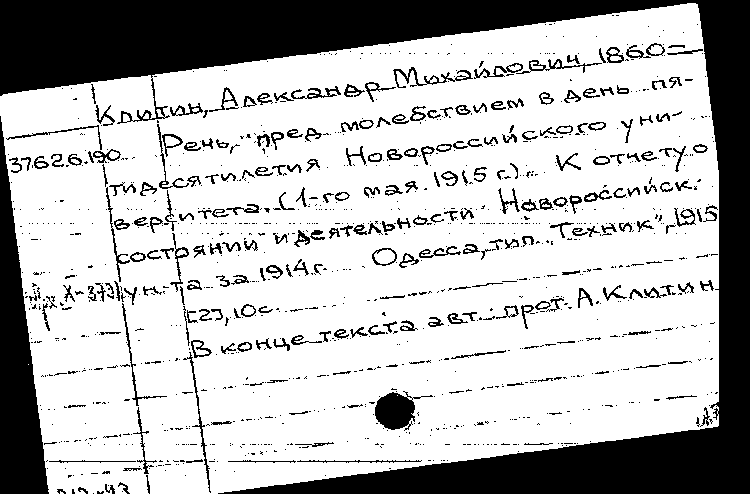 Клитин, Александр Михайлович, 1860-
3762.6.190 Речь, "пред молебствием в день пя-
тидесятилетия Новороссийского уни-
верситета. (1-го мая 1915 г.). К отчету о
состоянии и деятельности Новороссийск.
ун-та за 1914 г. Одесса, тип. "Техник", 1915
[2], 10 с.
В конце текста авт.: прот. А. Клитин